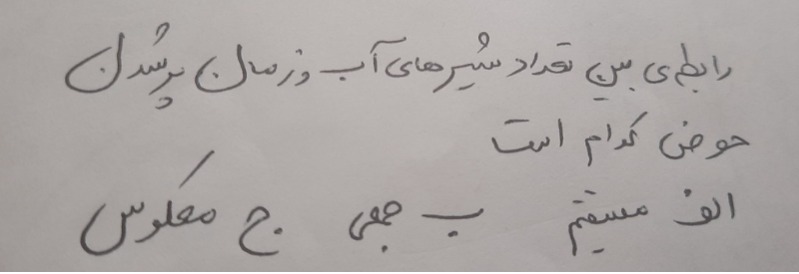 رابطه‌ی بین تعداد شیرهای آب و زمان پر شدن
حوض کدام است
الف مستقیم ب جمعی ج معکوس